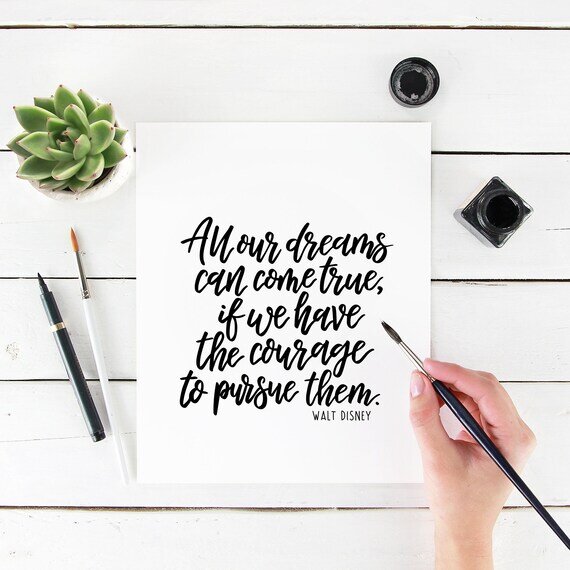 All our dreams
can come true,
if we have
the courage
to pursue them.
WALT DISNEY